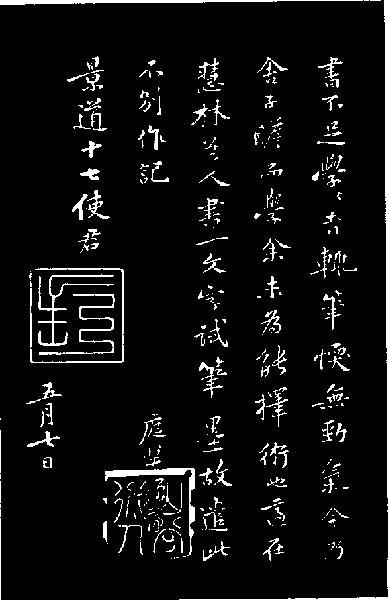 書不足學〻者輒筆愞無勁氣今乃
舍子瞻而學余未為能擇術也適在
慧林為人書一文字試筆墨故遣此
不別作記 庭堅
景道十七使君
五月七日